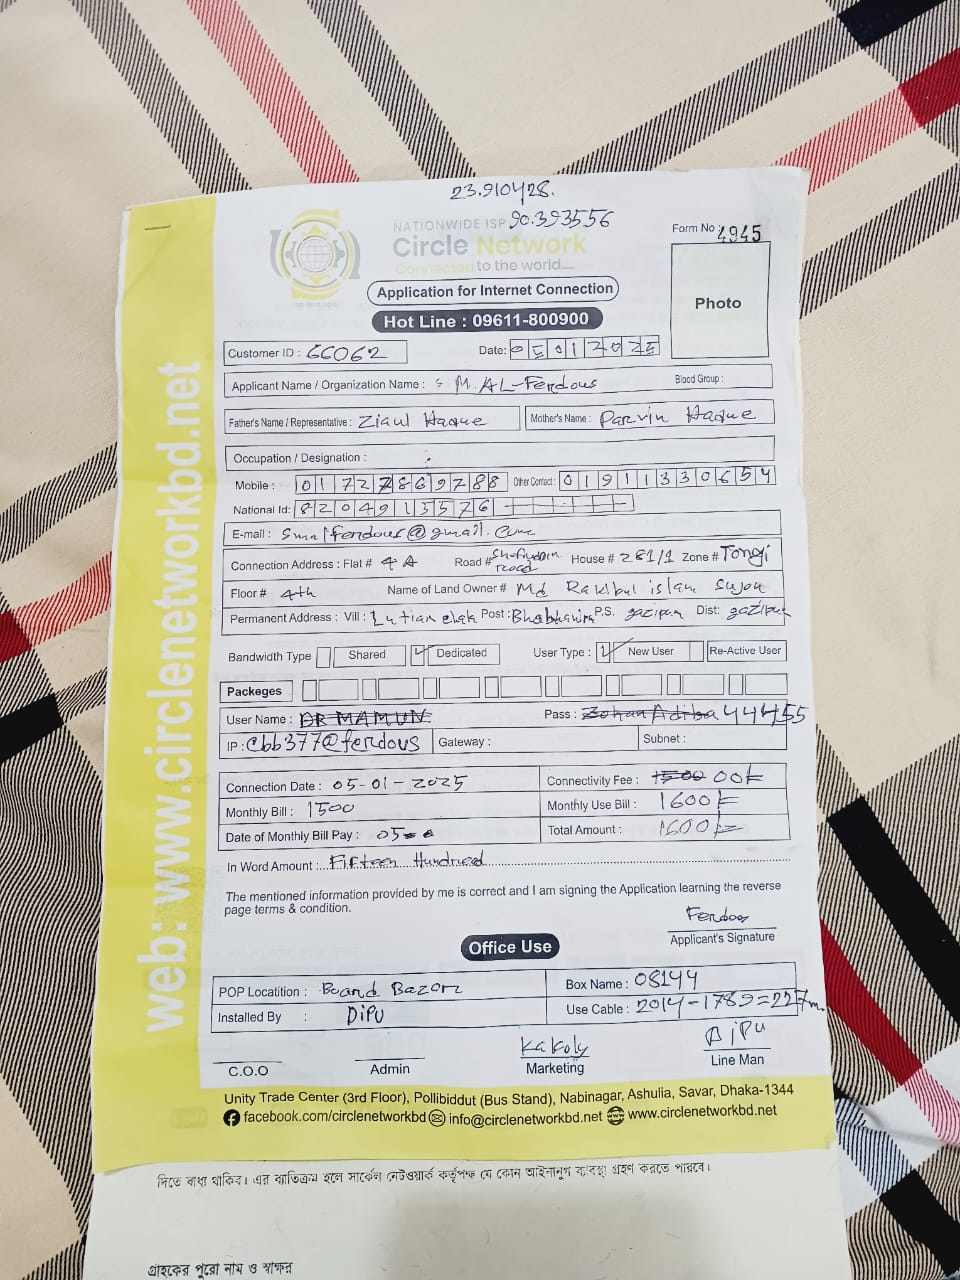 23.910428.
90.393556
NATIONWIDE ISP
Circle Network
Connected to the world.....
Form No 4945
Application for Internet Connection
Photo
Hot Line : 09611-800900
Customer ID : 66062
Date: 05012025
Applicant Name / Organization Name : M. AL-Ferdous Blood Group :
Father's Name / Representative : Ziaul Haque Mother's Name : Parvin Haque
Occupation / Designation :
Mobile : 01727869788 Other Contact : 01911330654
National Id: 8204913576
E-mail : smalferdous@gmail.com
Connection Address : Flat # 4A Road # Road House # 281/1 Zone # Tongi
Floor # 4th Name of Land Owner # Md Rakibul islam Sujon
Permanent Address : Vill : Post : P.S. gazipur Dist: gazipur
Bandwidth Type Shared Dedicated User Type : New User Re-Active User
Packeges
User Name : DR MAMUN Pass : Zohan Adiba 44455
IP : cbb377@ferdous Gateway : Subnet :
Connection Date : 05-01-2025 Connectivity Fee : 1500 00/=
Monthly Bill : 1500 Monthly Use Bill : 1600/=
Date of Monthly Bill Pay : 05 Total Amount : 1600/=
In Word Amount :... Fifteen Hundred
The mentioned information provided by me is correct and I am signing the Application learning the reverse
page terms & condition.
Ferdous
Applicant's Signature
Office Use
POP Locatition : Board Bazar Box Name : 08144
Installed By : DiPU Use Cable : 2014-1789=227m.
Kakoly DiPU
C.O.O Admin Marketing Line Man
Unity Trade Center (3rd Floor), Pollibiddut (Bus Stand), Nabinagar, Ashulia, Savar, Dhaka-1344
facebook.com/circlenetworkbd info@circlenetworkbd.net www.circlenetworkbd.net
web: www.circlenetworkbd.net
দিতে বাধ্য থাকিব। এর ব্যতিক্রম হলে সার্কেল নেটওয়ার্ক কর্তৃপক্ষ যে কোন আইনানুগ ব্যবস্থা গ্রহণ করতে পারবে।
গ্রাহকের পুরো নাম ও স্বাক্ষর